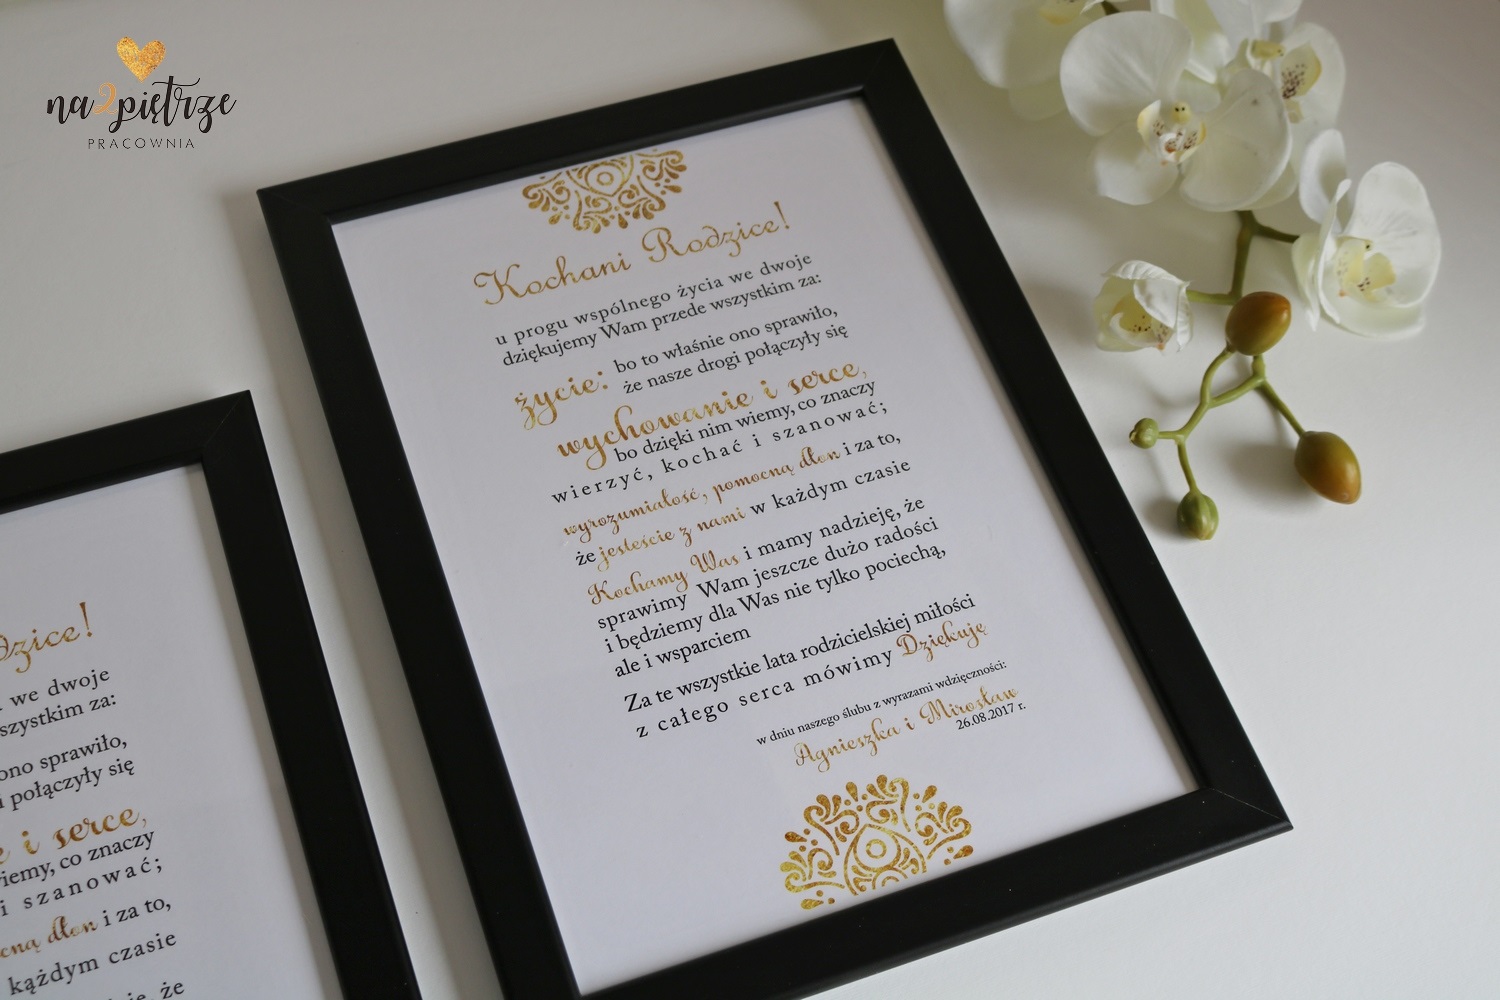 na2piętrze
PRACOWNIA
Kochani Rodzice!
u progu wspólnego życia we dwoje
dziękujemy Wam przede wszystkim za:
życie: bo to właśnie ono sprawiło,
że nasze drogi połączyły się
wychowanie i serce,
bo dzięki nim wiemy, co znaczy
wierzyć, kochać i szanować;
wyrozumiałość, pomocną dłoń i za to,
że jesteście z nami w każdym czasie
Kochamy Was i mamy nadzieję, że
sprawimy Wam jeszcze dużo radości
i będziemy dla Was nie tylko pociechą,
ale i wsparciem
Za te wszystkie lata rodzicielskiej miłości
z całego serca mówimy Dziękuję
w dniu naszego ślubu z wyrazami wdzięczności:
Agnieszka i Mirosław
26.08.2017 r.
dzice!
we dwoje
szystkim za:
ono sprawiło,
i połączyły się
e i serce,
iemy, co znaczy
i szanować;
cną dłoń i za to,
każdym czasie
że